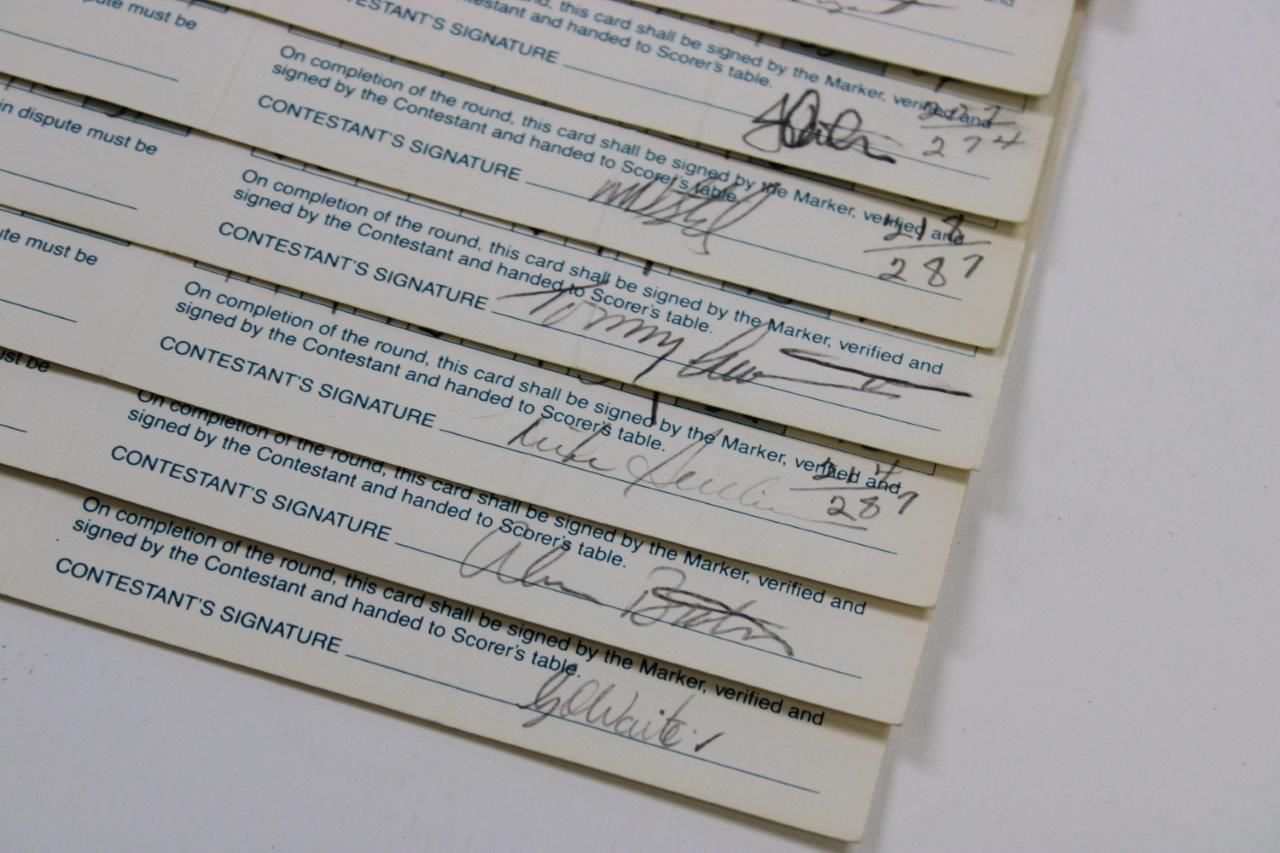 and
CONTESTANT'S SIGNATURE
round, this card shall be signed by the Marker, verified and
Contestant and handed to Scorer's table.
must be
227
274
On completion of the round, this card shall be signed by the Marker, verified and
signed by the Contestant and handed to Scorer's table.
CONTESTANT'S SIGNATURE
in dispute must be
218
287
On completion of the round, this card shall be signed by the Marker, verified and
signed by the Contestant and handed to Scorer's table.
CONTESTANT'S SIGNATURE Tommy
must be
On completion of the round, this card shall be signed by the Marker, verified and
signed by the Contestant and handed to Scorer's table.
CONTESTANT'S SIGNATURE
217
287
must be
On completion of the round, this card shall be signed by the Marker, verified and
signed by the Contestant and handed to Scorer's table.
CONTESTANT'S SIGNATURE
On completion of the round, this card shall be signed by the Marker, verified and
signed by the Contestant and handed to Scorer's table.
CONTESTANT'S SIGNATURE G Waite